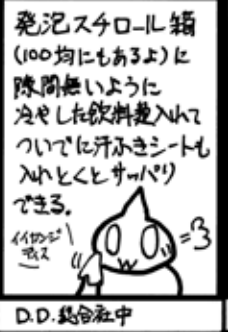 発泡スチロール箱
(100均にもあるよ)に
隙間無いように
冷やした飲料類入れて
ついでに汗ふきシートも
入れとくとサッパリ
できる。
イイカンジ
デイス
D.D.総合社中